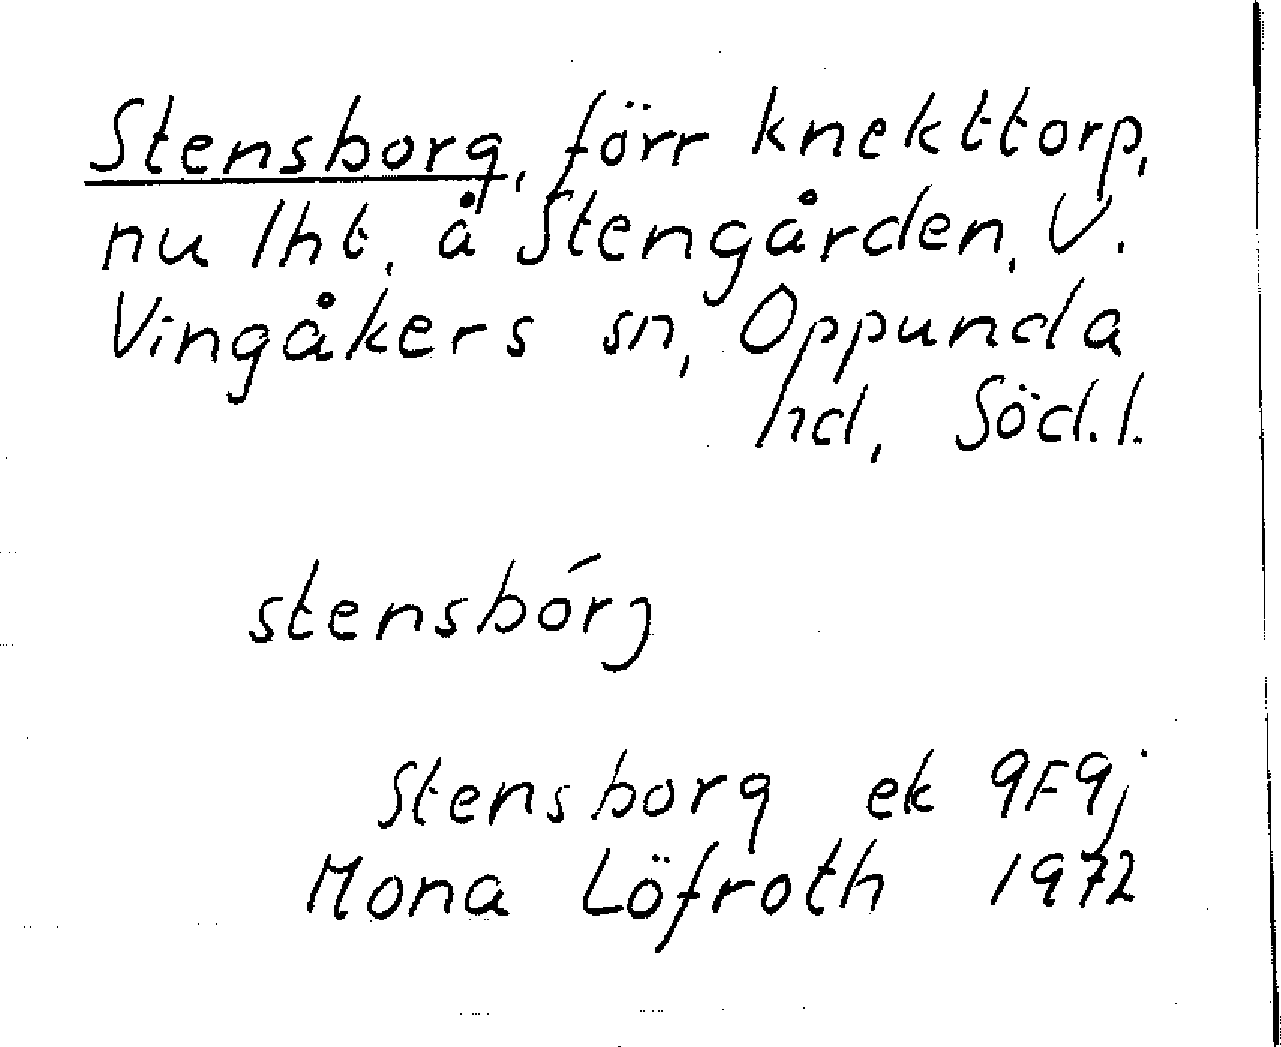 Stensborg, förr knekttorp,
nu lht, å Stengården, V.
Vingåkers sn, Oppunda
hd, Söd.l.
stensbórj
Stensborg ek 9F9j
Mona Löfroth 1972